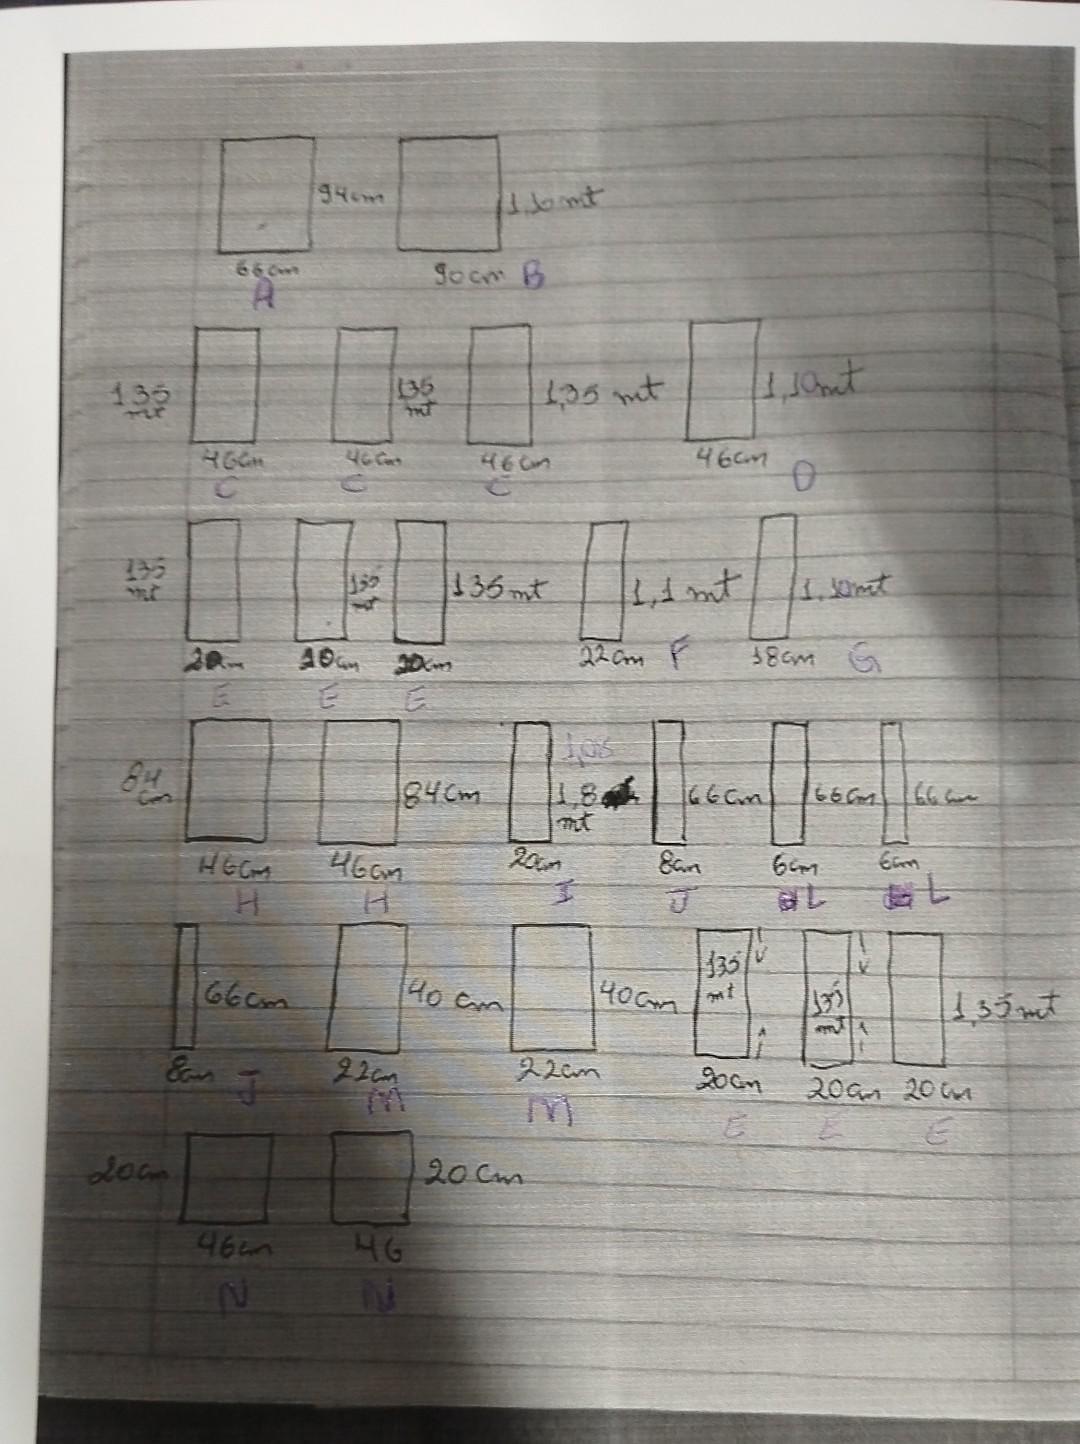 94cm 1,10mt
66cm 90cm B
A
135 mt 135 mt 1,35 mt 1,10mt
46cm 46cm 46cm 46cm
C C C D
135 mt 135 mt 135mt 1,1mt 1,10mt
20cm 20cm 20cm 22cm F 18cm G
E E E
1,08
84 cm 84cm 1,8 mt 66cm 66cm 66cm
46cm 46cm 20cm 8cm 6cm 6cm
H H I J L L
66cm 40cm 40cm 135 mt 135 mt 1,35mt
8cm J 22cm 22cm 20cm 20cm 20cm
M M E E E
20cm 20cm
46cm 46
N N